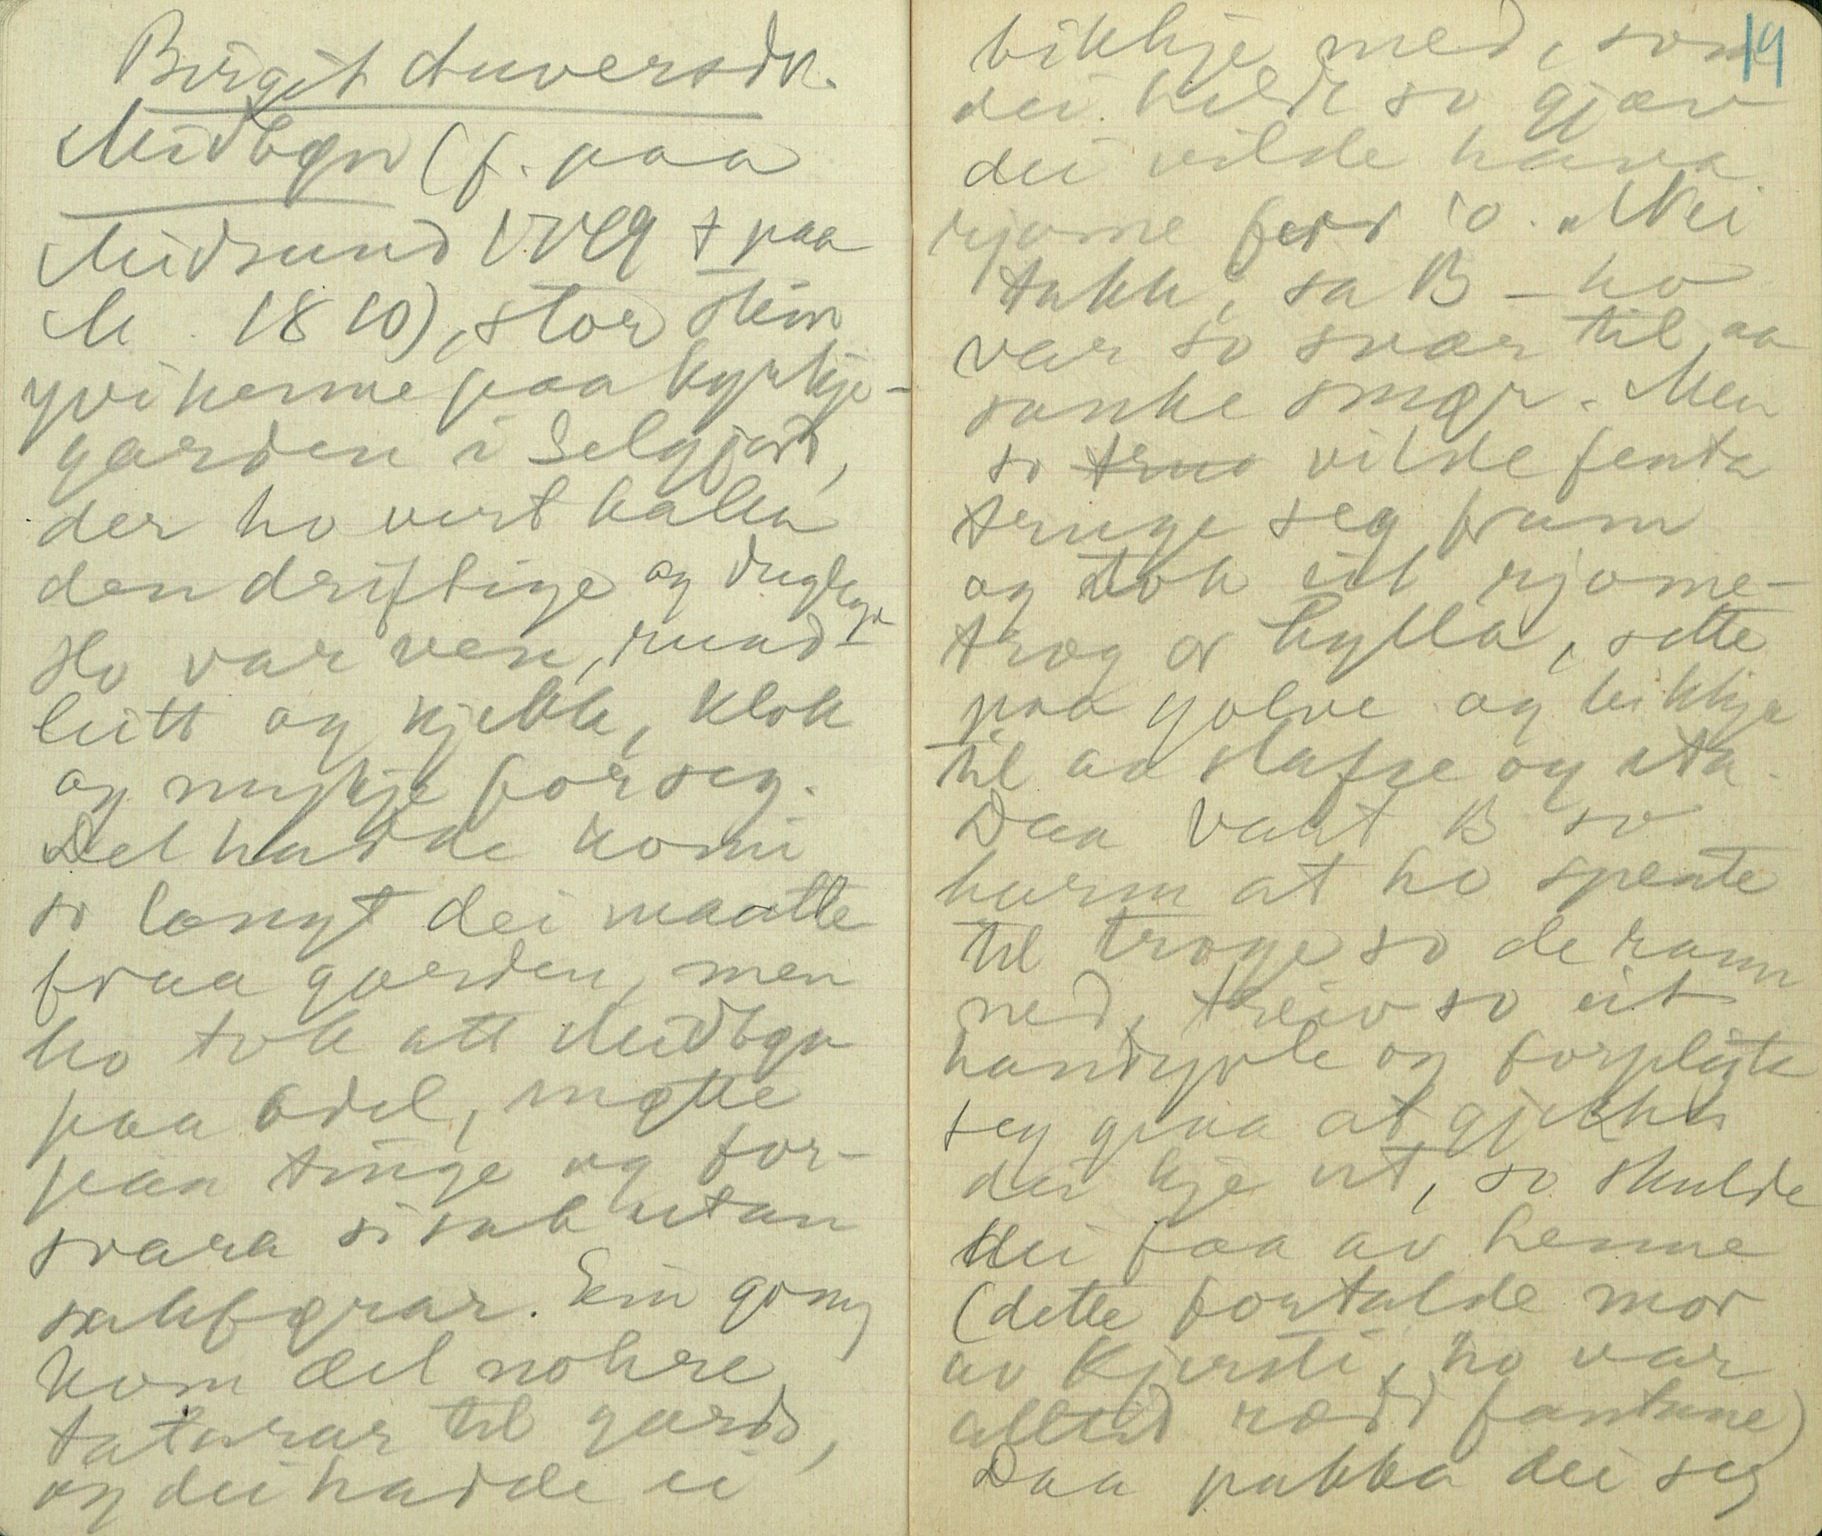 Birgit Auversdtr.
Midbøn (f. paa
Midsund 1749 † paa
M. 1810), stor stein
yvi henne paa kyrkje-
garden i Selgjord,
der ho vert kalla
den driftige og duglege
Ho var ven, rund-
leitt og kjekk, klok
og mykje for seg.
Det hadde komi
so langt dei maatte
fraa garden, men
ho tok att Midbøn
paa odel, møtte
paa tinge og for-
svara si sak utan
sakførar. Ein gong
kom det nokre
taterar til gards,
og dei hadde ei
19
bikkje med, som
dei heldt so gjæv
dei vilde hava
rjome ferd io. "Nei
takk, sa B – ho
var so svær til aa
sanke smør. Men
so vilde fenta
truge seg fram
og tok eit rjome-
trog or hylla, sette
paa golve og bikkja
til aa slafse og eta.
Daa vart B so
harm at ho spente
til troge so de rann
ned, treiv so eit
handyvle og forpligta
seg paa at gjekk
dei kje ut, so skulde
dei faa av henne
(dette fortalde mor
av Kjersti, ho var
alltid rædd fantane)
Daa pakka dei seg